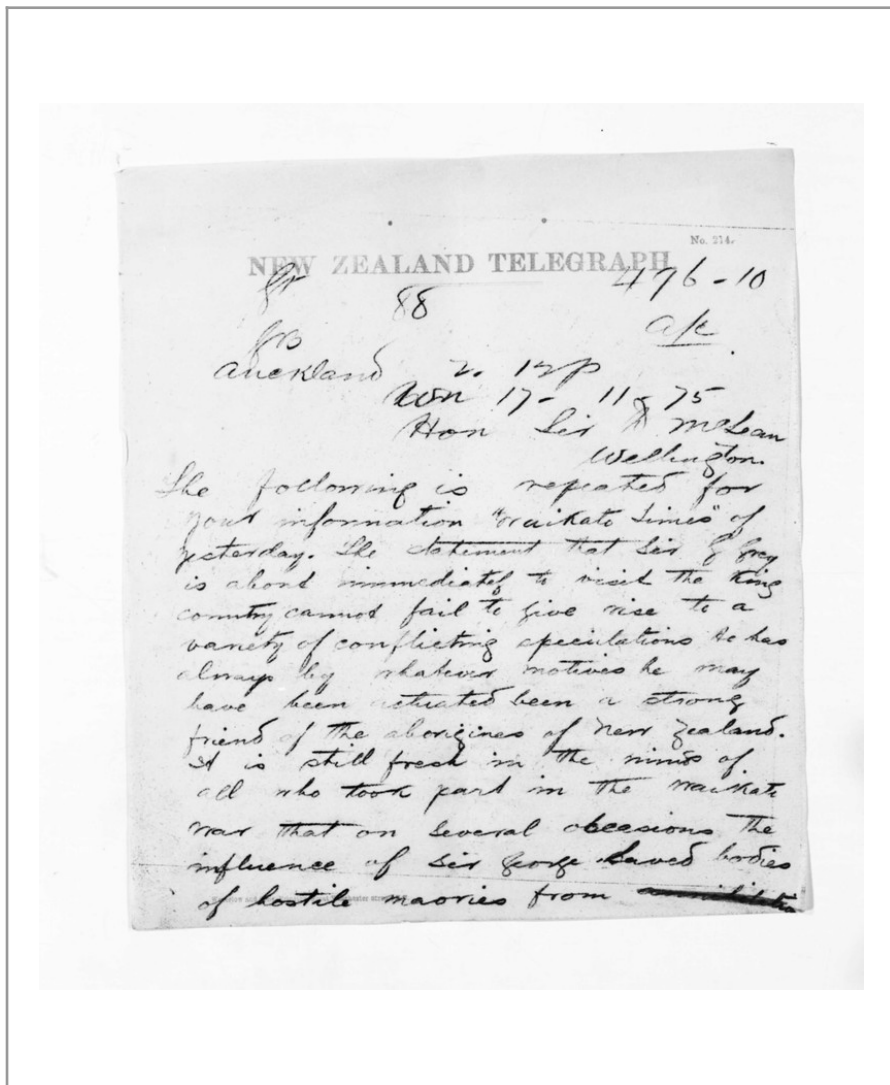 No. 214.
NEW ZEALAND TELEGRAPH
476-10
88
a/c
Auckland 2. 12p
17- 11 75
Hon Sir D McLean
Wellington.
The following is repeated for
your information "Waikato Times" of
yesterday. The statement that Sir G Grey
is about immediately to visit the King
country cannot fail to give rise to a
variety of conflicting speculations he has
always by whatever motives he may
have been actuated been a strong
friend of the aborigines of New Zealand.
It is still fresh in the minds of
all who took part in the Waikato
war that on several occasions the
influence of Sir George saved bodies
of hostile maories from